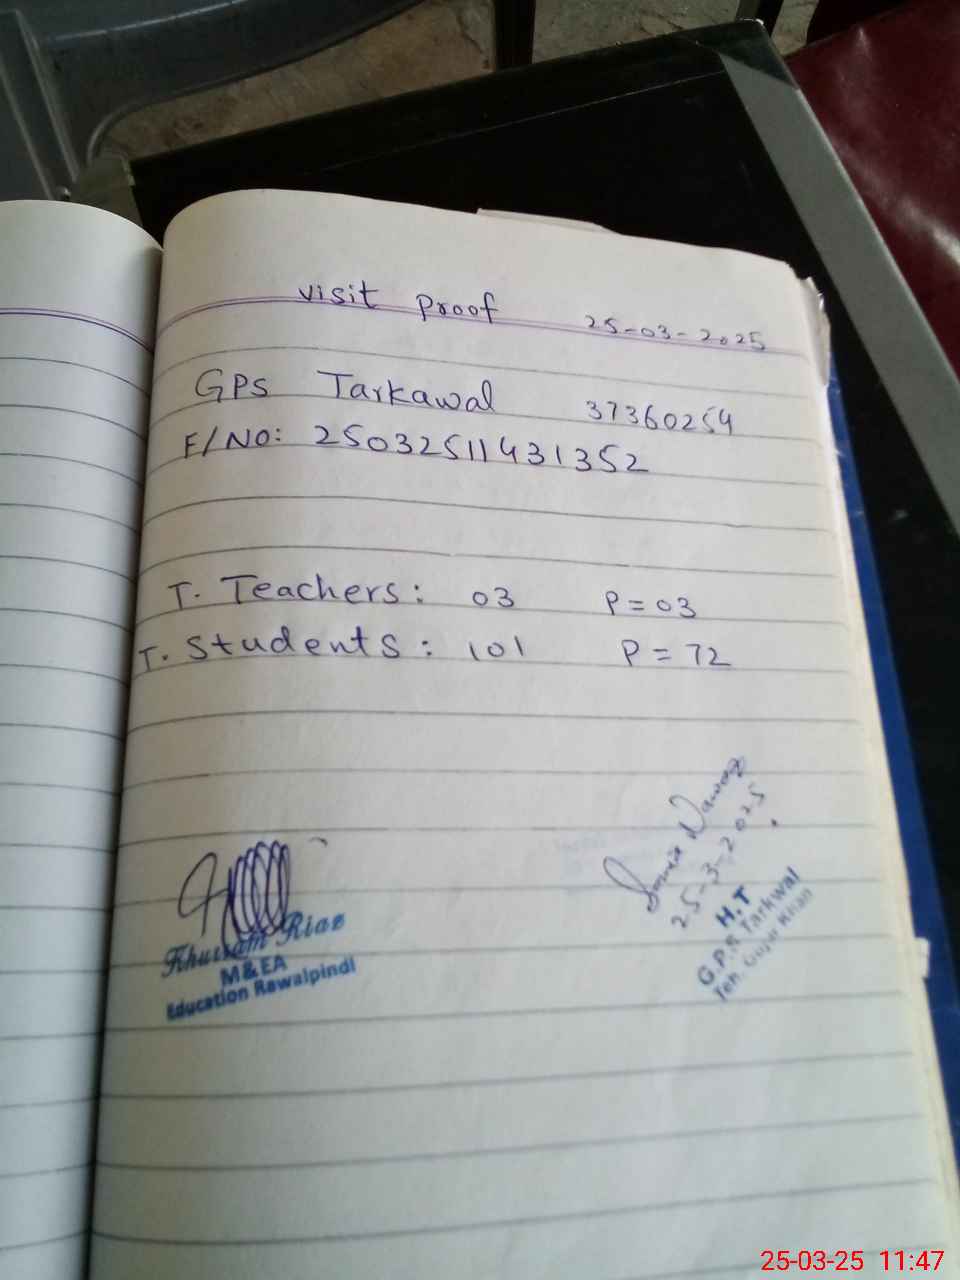 visit proof 25-03-2025
GPS Tarkawal 37360254
F/NO: 25032511431352
T. Teachers: 03 P=03
T. Students: 101 P=72
Khurram Riaz
M&EA
Education Rawalpindi
Sonia Nawaz
25-3-2025
H.T
G.P.S Tarkwal
Teh. Gujar Khan
25-03-25 11:47